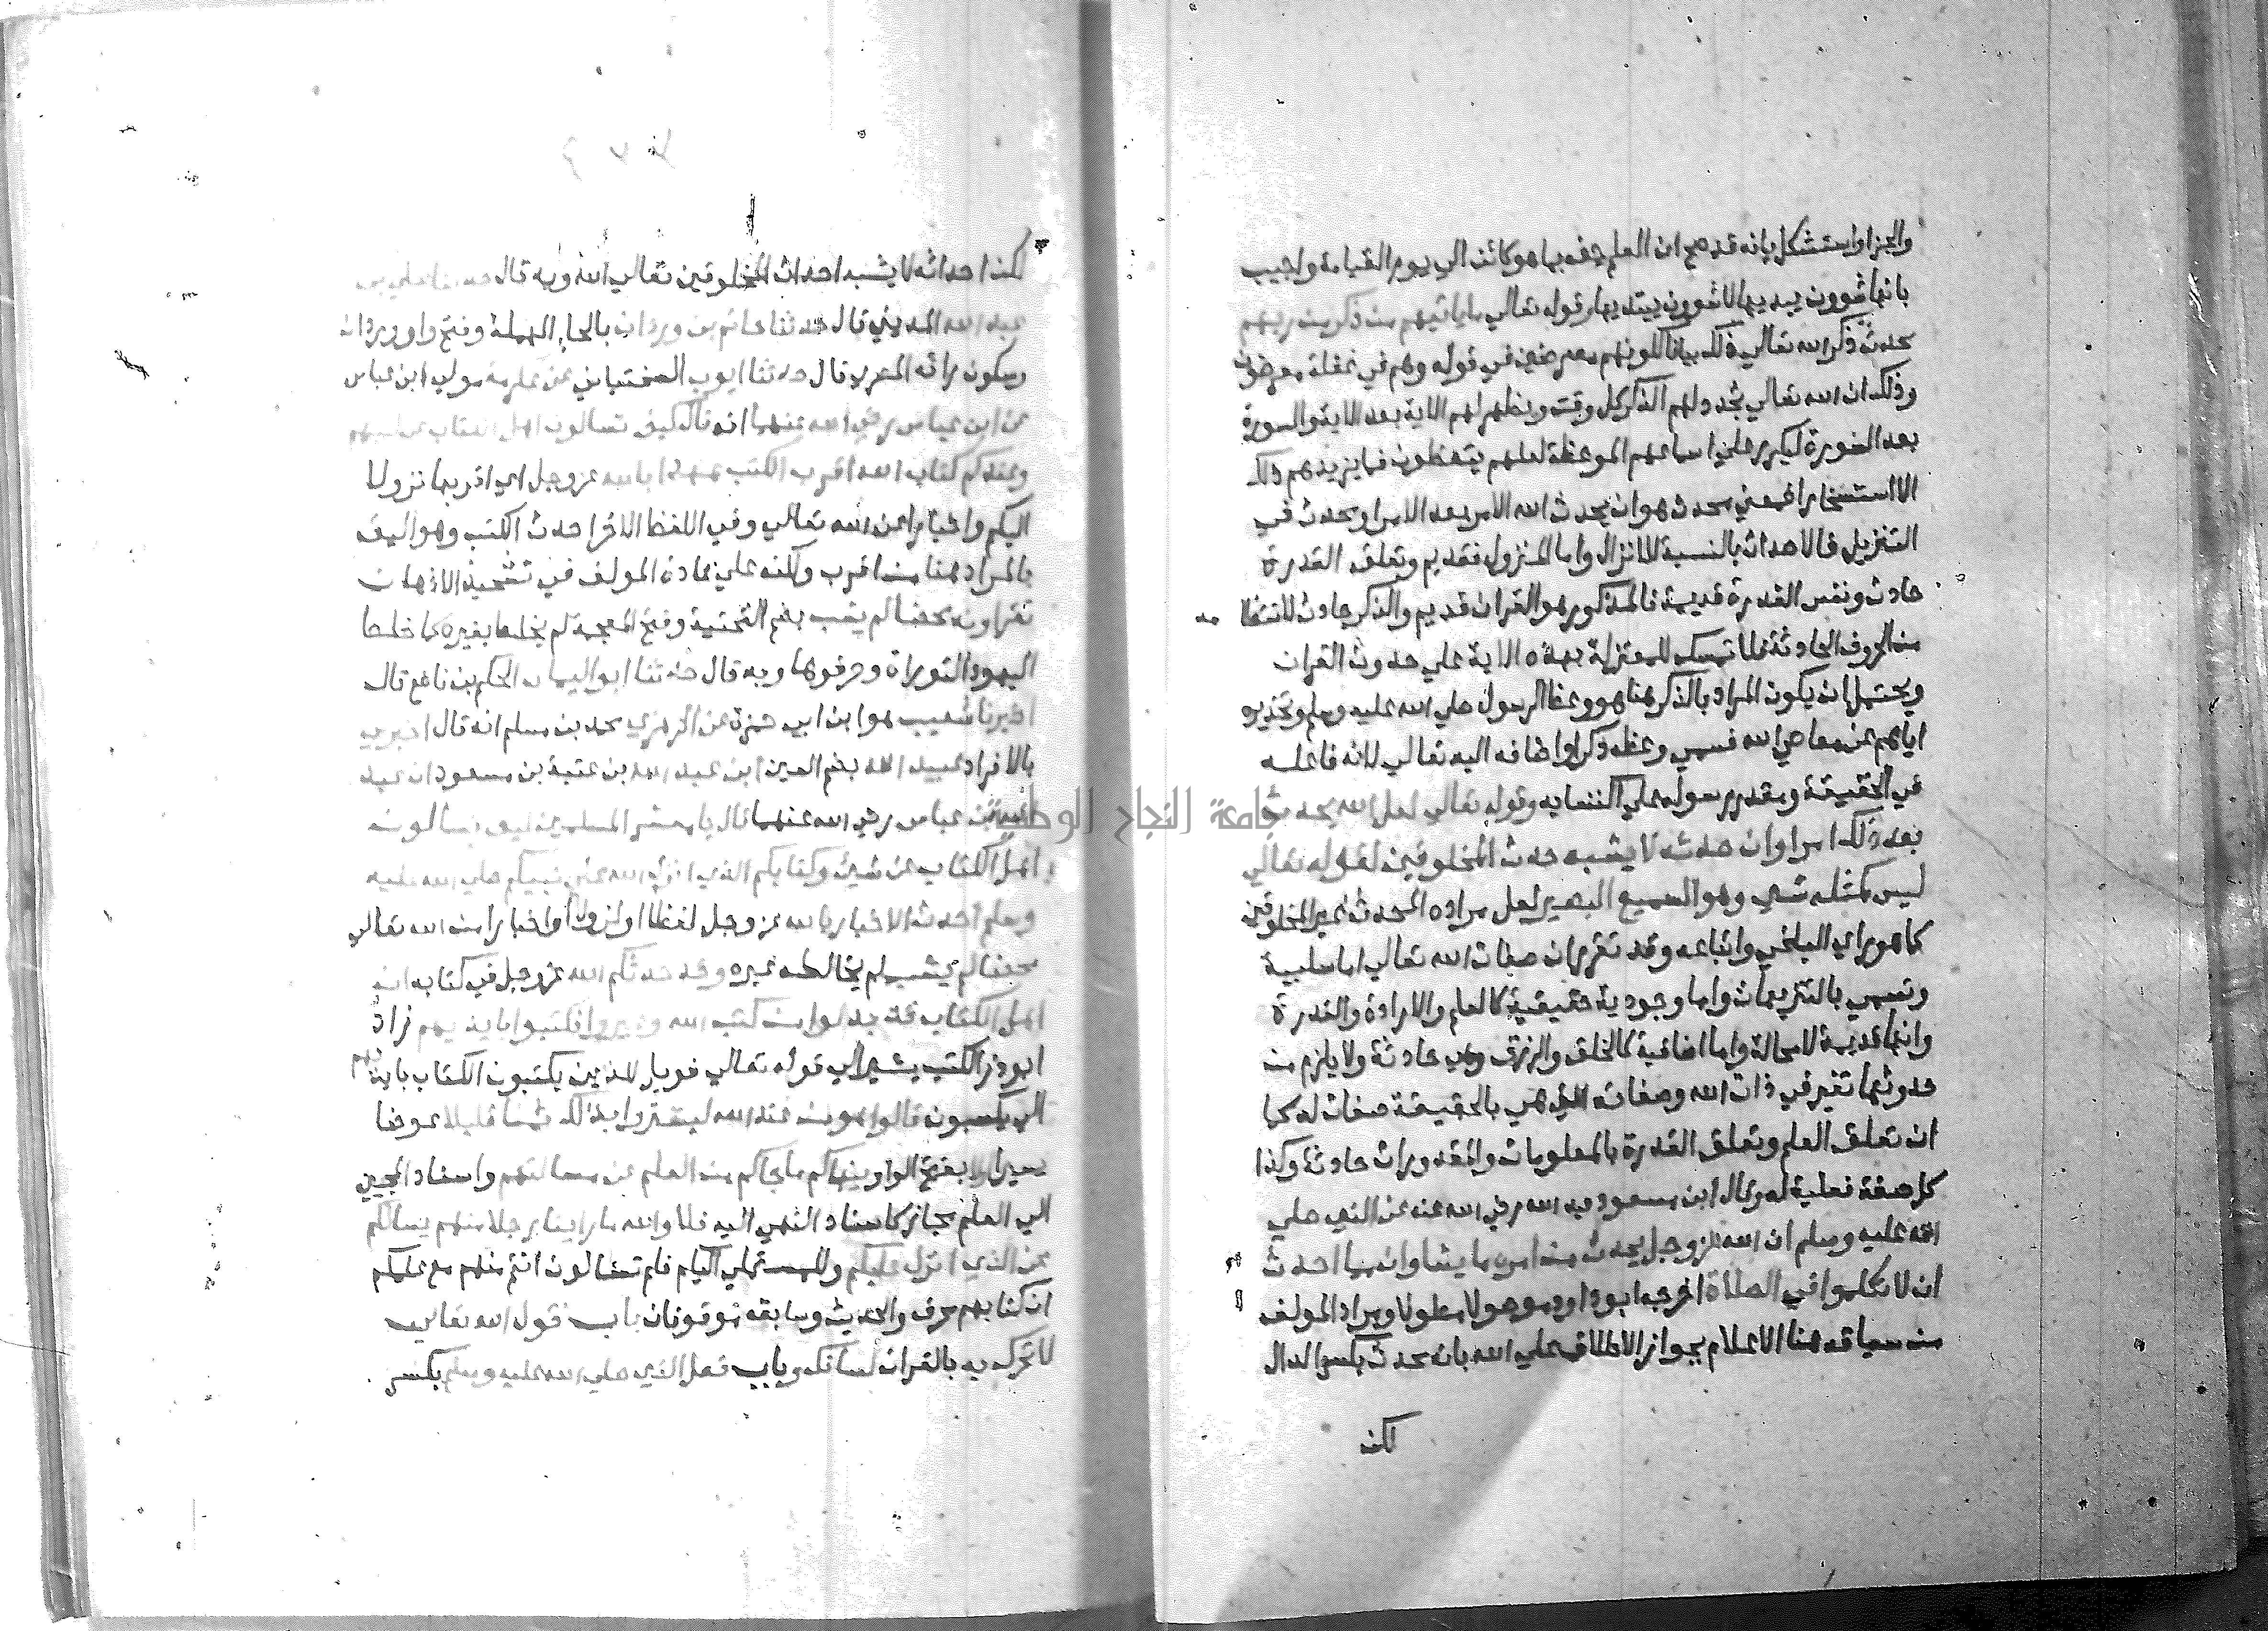 والجزا واستشكل بانه قد صح ان القلم جف بما هو كائن الى يوم القيامة واجيب
بانها شوون يبديها لا شوون يبتديها وقوله تعالي ما ياتيهم من ذكر من ربهم
محدث ذكر الله تعالي ذلك بيانا لكونهم معرضين في قوله وهم في غفلة معرضون
وذلك ان الله تعالي يجدد لهم الذكر كل وقت ويظهر لهم الاية بعد الاية والسورة
بعد السورة ليكرر علي اسماعهم الموعظة لعلهم يتعظون فما يزيدهم ذلك
الا استسخارا فمعني محدث هو ان يحدث الله الامر بعد الامر او محدث في
التنزيل فالاحداث بالنسبة للانزال واما المنزول فقديم وتعلق القدرة
حادث ونفس القدرة قديمة فالمذكور هو القران قديم والذكر حادث لانتظامه
من الحروف الحادثة فلا تمسك للمعتزلة بهذه الاية علي حدوث القران
ويحتمل ان يكون المراد بالذكر هنا هو وعظ الرسول صلي الله عليه وسلم وتحذيره
اياهم عن معاصي الله فسمي وعظه ذكرا واضافه اليه تعالي لانه فاعله
في الحقيقة ومقدر رسوله علي اكتسابه وقوله تعالي لعل الله يحدث
بعد ذلك امرا وان حدثه لا يشبه حدث المخلوقين لقوله تعالي
ليس كمثله شي وهو السميع البصير لعل مراده المحدث غير المخلوقين
كما هو راي البلخي واتباعه وقد تقرر ان صفات الله تعالي اما سلبية
وتسمي بالتنزيهات واما وجودية حقيقية كالعلم والارادة والقدرة
وانها قديمة لا محالة واما اضافية كالخلق والرزق وهي حادثة ولا يلزم من
حدوثها تغير في ذات الله وصفاته التي هي بالحقيقة صفات له كما
ان تعلق العلم وتعلق القدرة بالمعلومات والمقدورات حادثة وكذا
كل صفة فعلية له وقال ابن مسعود عبد الله رضي الله عنه عن النبي صلي
الله عليه وسلم ان الله عز وجل يحدث من امره ما يشا وان مما احدث
ان لا تكلموا في الصلاة اخرجه ابو داود موصولا مطولا ومراد المولف
من سياقه هنا الاعلام بجواز الاطلاق علي الله بانه محدث بكسر الدال
لكن
لكن احداثه لا يشبه احداث المخلوقين تعالي الله وبه قال حدثنا علي بن
عبد الله المديني قال حدثنا حاتم بن وردان بالحا المهملة وفتح واو وردان
وسكون رائه المصري قال حدثنا ايوب السختياني عن عكرمة مولي ابن عباس
عن ابن عباس رضي الله عنهما انه قال كيف تسالون اهل الكتاب عن كتبهم
وعندكم كتاب الله اقرب الكتب عهدا بالله عز وجل اي اقربها نزولا
اليكم واخبارا عن الله تعالي وفي اللفظ الاخر احدث الكتب وهو اليق
بالمراد هنا من اقرب ولكنه علي عادة المولف في تشحيذ الاذهان
تقراونه محضا لم يشب بضم التحتية وفتح المعجمة لم يخلط بغيره كما خلط
اليهود التوراة وحرفوها وبه قال حدثنا ابو اليمان الحكم بن نافع قال
اخبرنا شعيب هو ابن ابي حمزة عن الزهري محمد بن مسلم انه قال اخبرني
بالافراد عبيد الله بضم العين ابن عبد الله بن عتبة بن مسعود ان عبد
الله بن عباس رضي الله عنهما قال يا معشر المسلمين كيف تسالون
اهل الكتاب عن شيئ وكتابكم الذي انزل الله علي نبيكم صلي الله عليه
وسلم احدث الاخبار بالله عز وجل لفظا او نزولا او اخبارا من الله تعالي
محضا لم يشب لم يخالطه غيره وقد حدثكم الله عز وجل في كتابه ان
اهل الكتاب قد بدلوا من كتب الله وغيروا فكتبوا بايديهم زاد
ابو ذر الكتب يشير الي قوله تعالي فويل للذين يكتبون الكتاب بايديهم
الي يكسبون قالوا هو من عند الله ليشتروا بذلك ثمنا قليلا عوضا
يسيرا اولا بفتح الواو ينهاكم ما جاكم من العلم عن مسالتهم واسناد المجي
الي العلم مجاز كاسناد النهي اليه فلا والله ما راينا رجلا منهم يسالكم
عن الذي انزل عليكم وللمستملي اليكم فلم تسالون انتم منهم مع علمكم
ان كتابهم محرف والحديث وسابقه موقوفان باب قول الله تعالي
لا تحرك به بالقران لسانك وباب فعل النبي صلي الله عليه وسلم بكسر
جامعة النجاح الوطنية